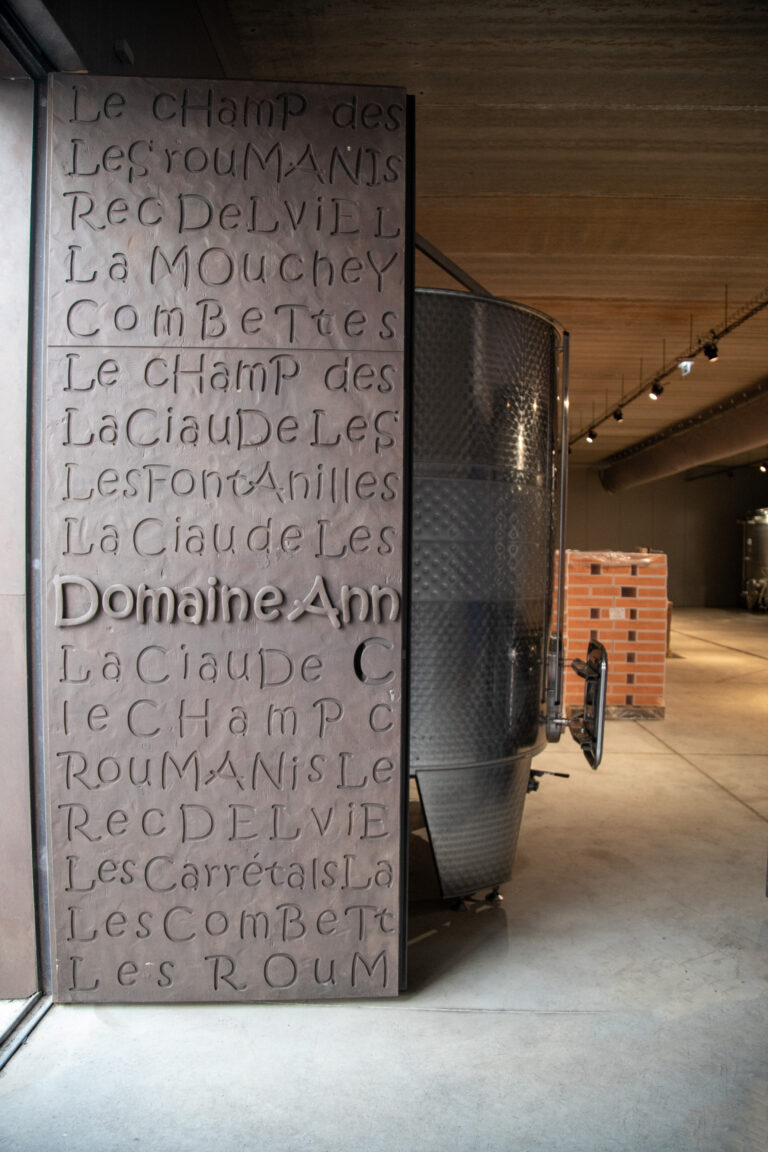 Le cHamP des
LeS rouMANIs
Rec DeLViE L
La MOucheY
ComBeTtes
Le cHamP des
LaCiauDe LeS
LesFontAnilles
La Ciaude Les
Domaine Ann
LaCiauDe C
leCHamP c
RouMANis Le
RecDELViE
LesCarrétalsLa
LesComBeTt
Les ROuM